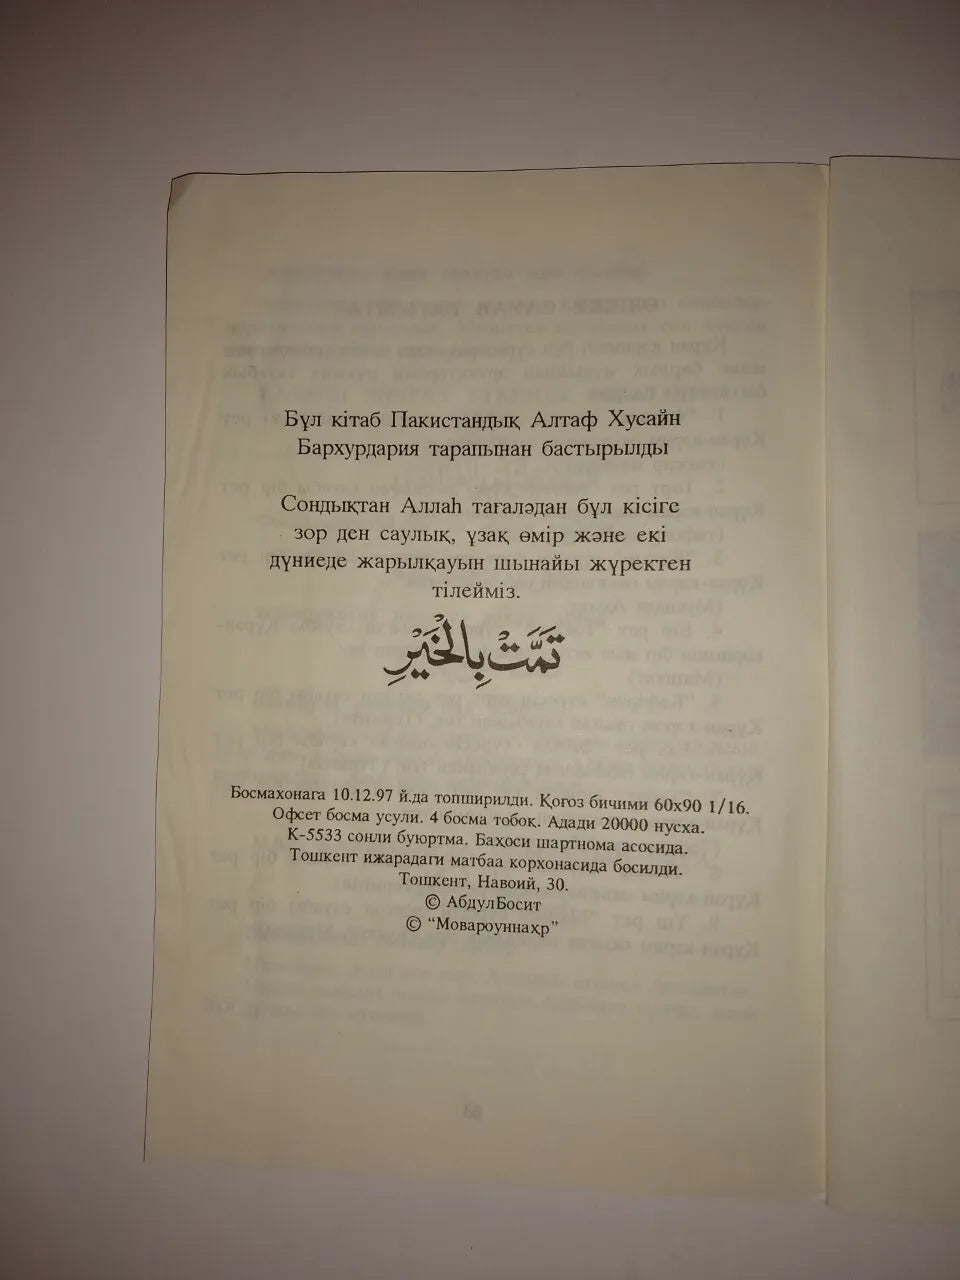 Бұл кітаб Пакистандық Алтаф Хусайн
Бархурдария тарапынан бастырылды
Сондықтан Аллаһ тағаләдан бұл кісіге
зор ден саулық, ұзақ өмір және екі
дүниеде жарылқауын шынайы жүректен
тілейміз.
تَمَّتْ بِالْخَيْرِ
Босмахонага 10.12.97 й.да топширилди. Қоғоз бичими 60x90 1/16.
Офсет босма усули. 4 босма тобоқ. Адади 20000 нусха.
К-5533 сонли буюртма. Баҳоси шартнома асосида.
Тошкент ижарадаги матбаа корхонасида босилди.
Тошкент, Навоий, 30.
© АбдулБосит
© “Мовароуннаҳр”